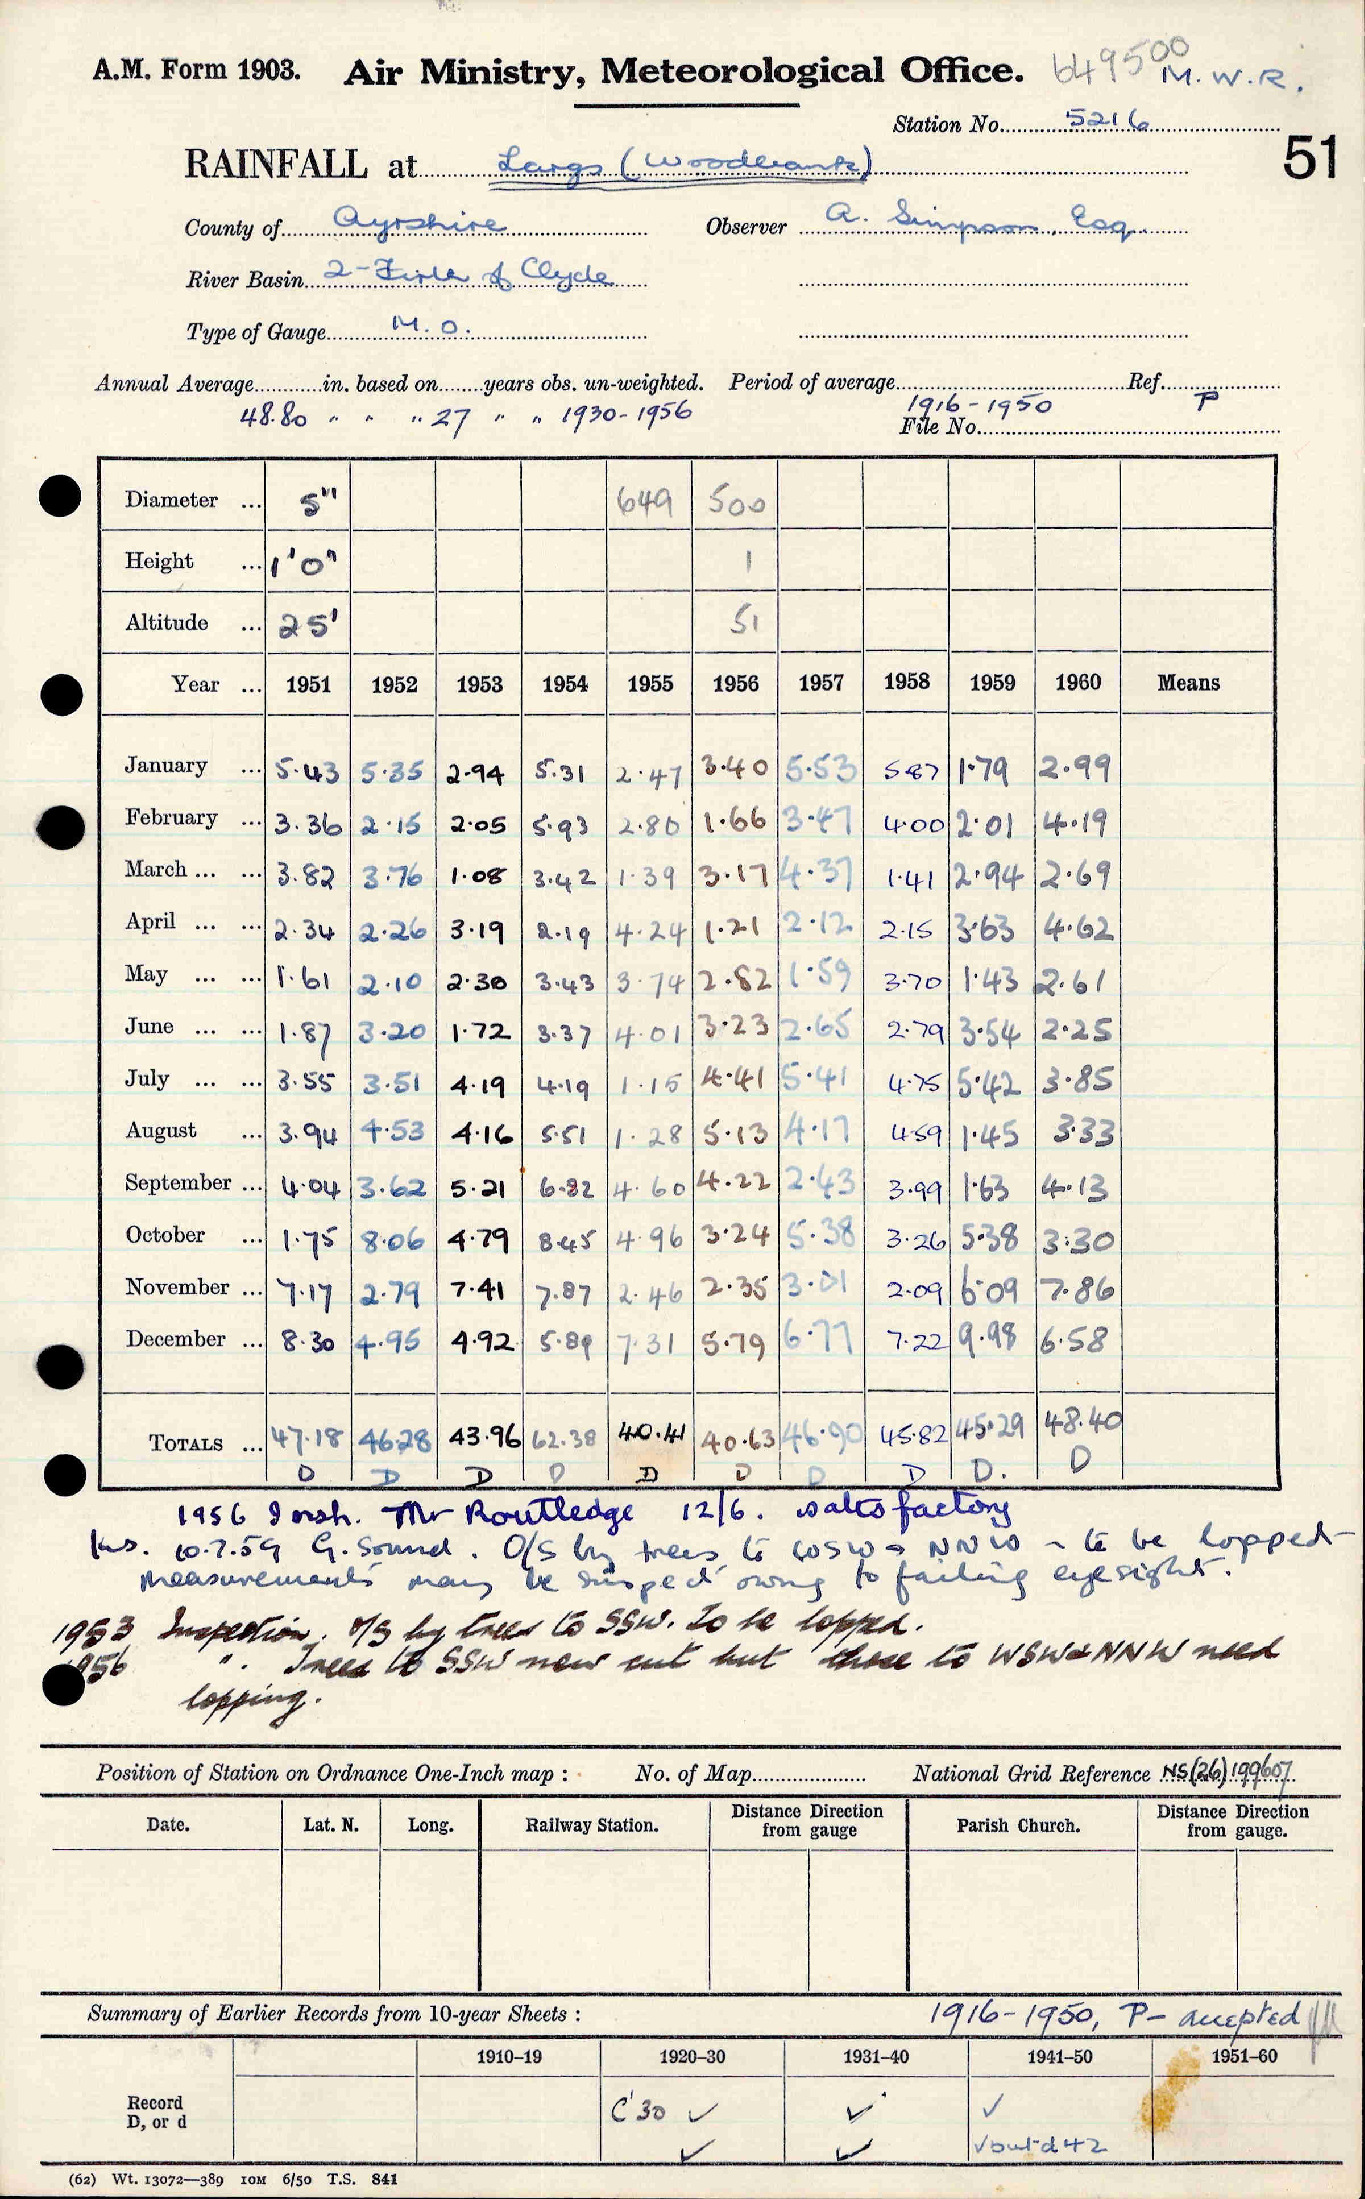 A.M. Form 1903. Air Ministry, Meteorological Office. 649500 M.W.R.
Station No. 5216
51
RAINFALL at Largs (Woodbank)
County of Ayrshire Observer A. Simpson, Esq.
River Basin 2-Firth of Clyde
Type of Gauge M.O.
Annual Average in. based on years obs. un-weighted. Period of average 1916-1950 Ref. P
48.80 " " " 27 " " 1930-1956 File No.
Diameter ... 5" 649 500
Height ... 1'0" 1
Altitude ... 25' 51
Year ... 1951 1952 1953 1954 1955 1956 1957 1958 1959 1960 Means
January ... 5.43 5.35 2.94 5.31 2.47 3.40 5.53 5.87 1.79 2.99
February ... 3.36 2.15 2.05 5.93 2.80 1.66 3.47 4.00 2.01 4.19
March ... ... 3.82 3.76 1.08 3.42 1.39 3.17 4.37 1.41 2.94 2.69
April ... ... 2.34 2.26 3.19 2.19 4.24 1.21 2.12 2.15 3.63 4.62
May ... ... 1.61 2.10 2.30 3.43 3.74 2.82 1.59 3.70 1.43 2.61
June ... ... 1.87 3.20 1.72 3.37 4.01 3.23 2.65 2.79 3.54 2.25
July ... ... 3.55 3.51 4.19 4.19 1.15 4.41 5.41 4.75 5.42 3.85
August ... 3.94 4.53 4.16 5.51 1.28 5.13 4.17 4.59 1.45 3.33
September ... 4.04 3.62 5.21 6.82 4.60 4.22 2.43 3.99 1.63 4.13
October ... 1.75 8.06 4.79 8.45 4.96 3.24 5.38 3.26 5.38 3.30
November ... 7.17 2.79 7.41 7.87 2.46 2.35 3.01 2.09 6.09 7.86
December ... 8.30 4.95 4.92 5.89 7.31 5.79 6.77 7.22 9.98 6.58
TOTALS ... 47.18 46.28 43.96 62.38 40.41 40.63 46.90 45.82 45.29 48.40
D D D D D D D D D. D
1956 Insp. Mr Routledge 12/6. satisfactory
Ins. 10.7.59 G. Sound. O/S by trees to WSW & NNW - to be lopped
measurements may be suspect owing to failing eyesight.
1953 Inspection. O/S by trees to SSW. To be lopped.
1956 ". Trees to SSW now cut but those to WSW & NNW need
lopping.
Position of Station on Ordnance One-Inch map : No. of Map National Grid Reference NS(26)199607
Date. Lat. N. Long. Railway Station. Distance Direction from gauge Parish Church. Distance Direction from gauge.
Summary of Earlier Records from 10-year Sheets : 1916-1950, P- accepted
1910-19 1920-30 1931-40 1941-50 1951-60
Record C'30 ✓ ✓ ✓
D, or d ✓ ✓ ✓ but d 42
(62) Wt. 13072—389 10M 6/50 T.S. 841